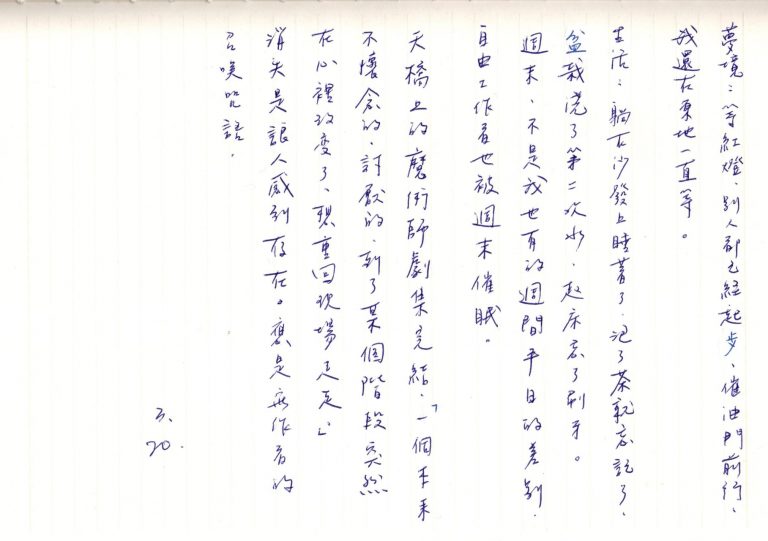 夢境：等紅燈、別人都已經起步、催油門前行，
我還在原地一直等。
生活：躺在沙發上睡著了，泡了茶就忘記了，
盆栽澆了第二次水，起床忘了刷牙。
週末，不是我也有的週間平日的差別，
自由工作者也被週末催眠。
天橋上的魔術師劇集完結，「一個本來
不懷念的，討厭的，到了某個階段突然
在心裡改變了、想重回現場走走」
消失是讓人感到存在。應是無作者的
召喚咒語。
3.
20.